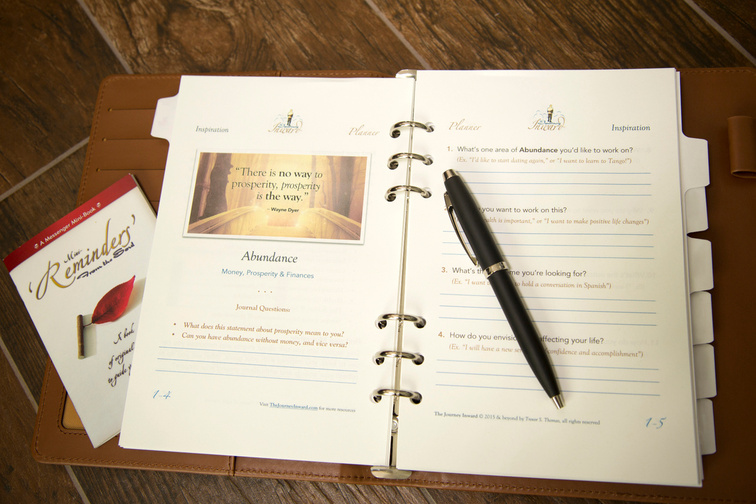 A Messenger Mini Book
Mini
Reminders
from the Soul
A book
of original
to guide
Inspiration
Inward
Planner
"There is no way to
prosperity, prosperity
is the way."
- Wayne Dyer
Abundance
Money, Prosperity & Finances
Journal Questions:
• What does this statement about prosperity mean to you?
• Can you have abundance without money, and vice versa?
1-4
Visit TheJourneyInward.com for more resources
Planner
Inward
Inspiration
1. What's one area of Abundance you'd like to work on?
(Ex. "I'd like to start dating again," or "I want to learn to Tango!")
you want to work on this?
is important," or "I want to make positive life changes")
3. What's th me you're looking for?
(Ex. "I want to hold a conversation in Spanish")
4. How do you envision affecting your life?
(Ex. "I will have a new confidence and accomplishment")
The Journey Inward © 2015 & beyond by Tracee S. Thomas, all rights reserved
1-5